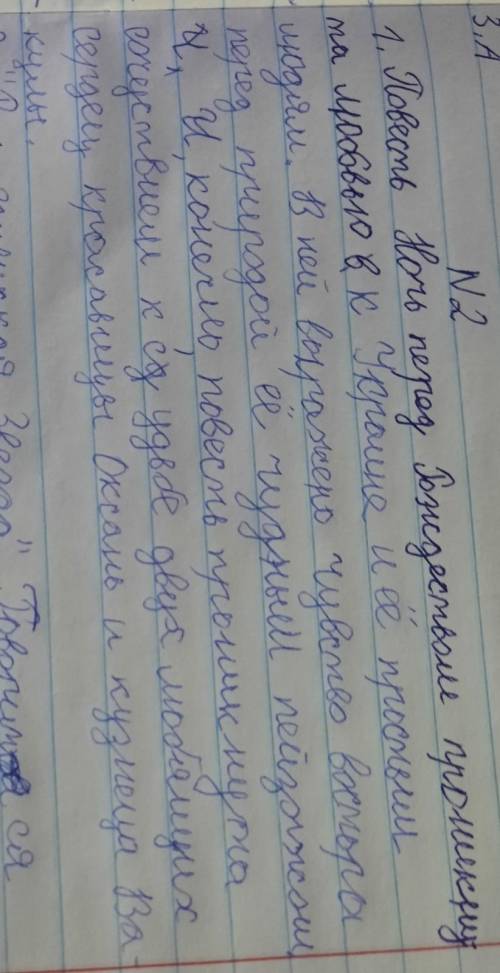 З.А
N2
1. Повесть Ночь перед Рождеством проникну
та любовью в к Украине и её простым
людям. В ней выражено чувство восторга
перед природой её чудными пейзажами
И, конечно, повесть проникнута
сочувствием к судьбе двух любящих
сердец красавицы Оксаны и кузнеца Ва-
кулы.
звезда" Говорится